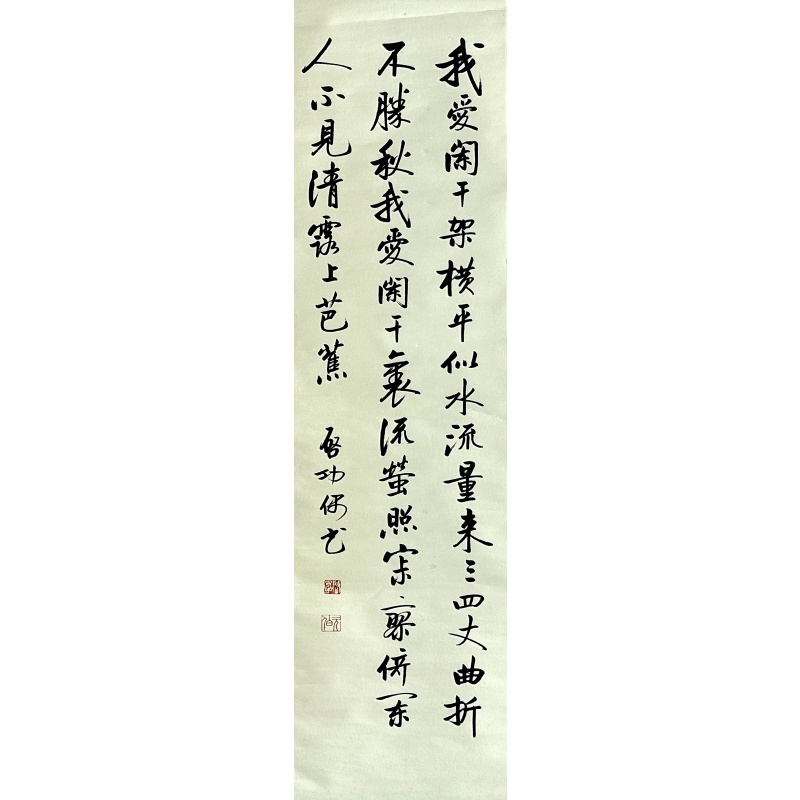 我愛闌干架横平似水流量来三四丈曲折
不勝秋我愛闌干裏流螢照寂寥倚闌
人不見清露上芭蕉 启功偶书